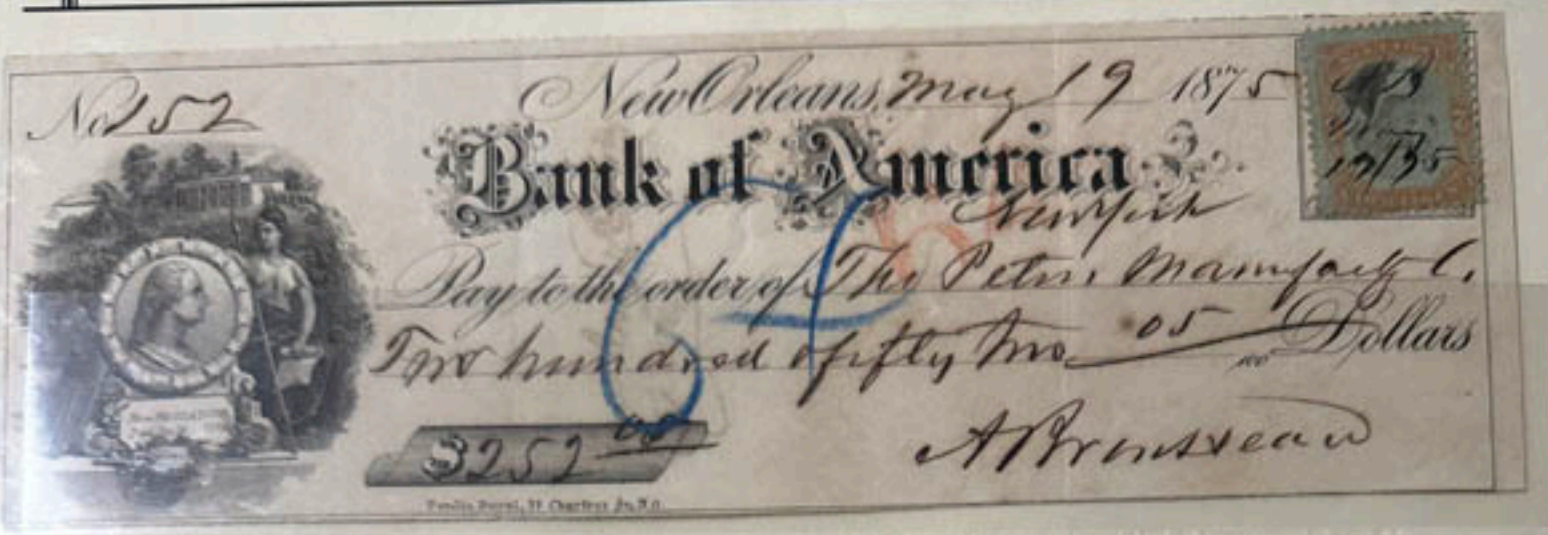 New Orleans, May 19 1875
No 152
Bank of America
New York
Pay to the order of The Petre. Manufactg C.
Two hundred & fifty two 05/100 Dollars
$252 05
A Brousseau
19/75